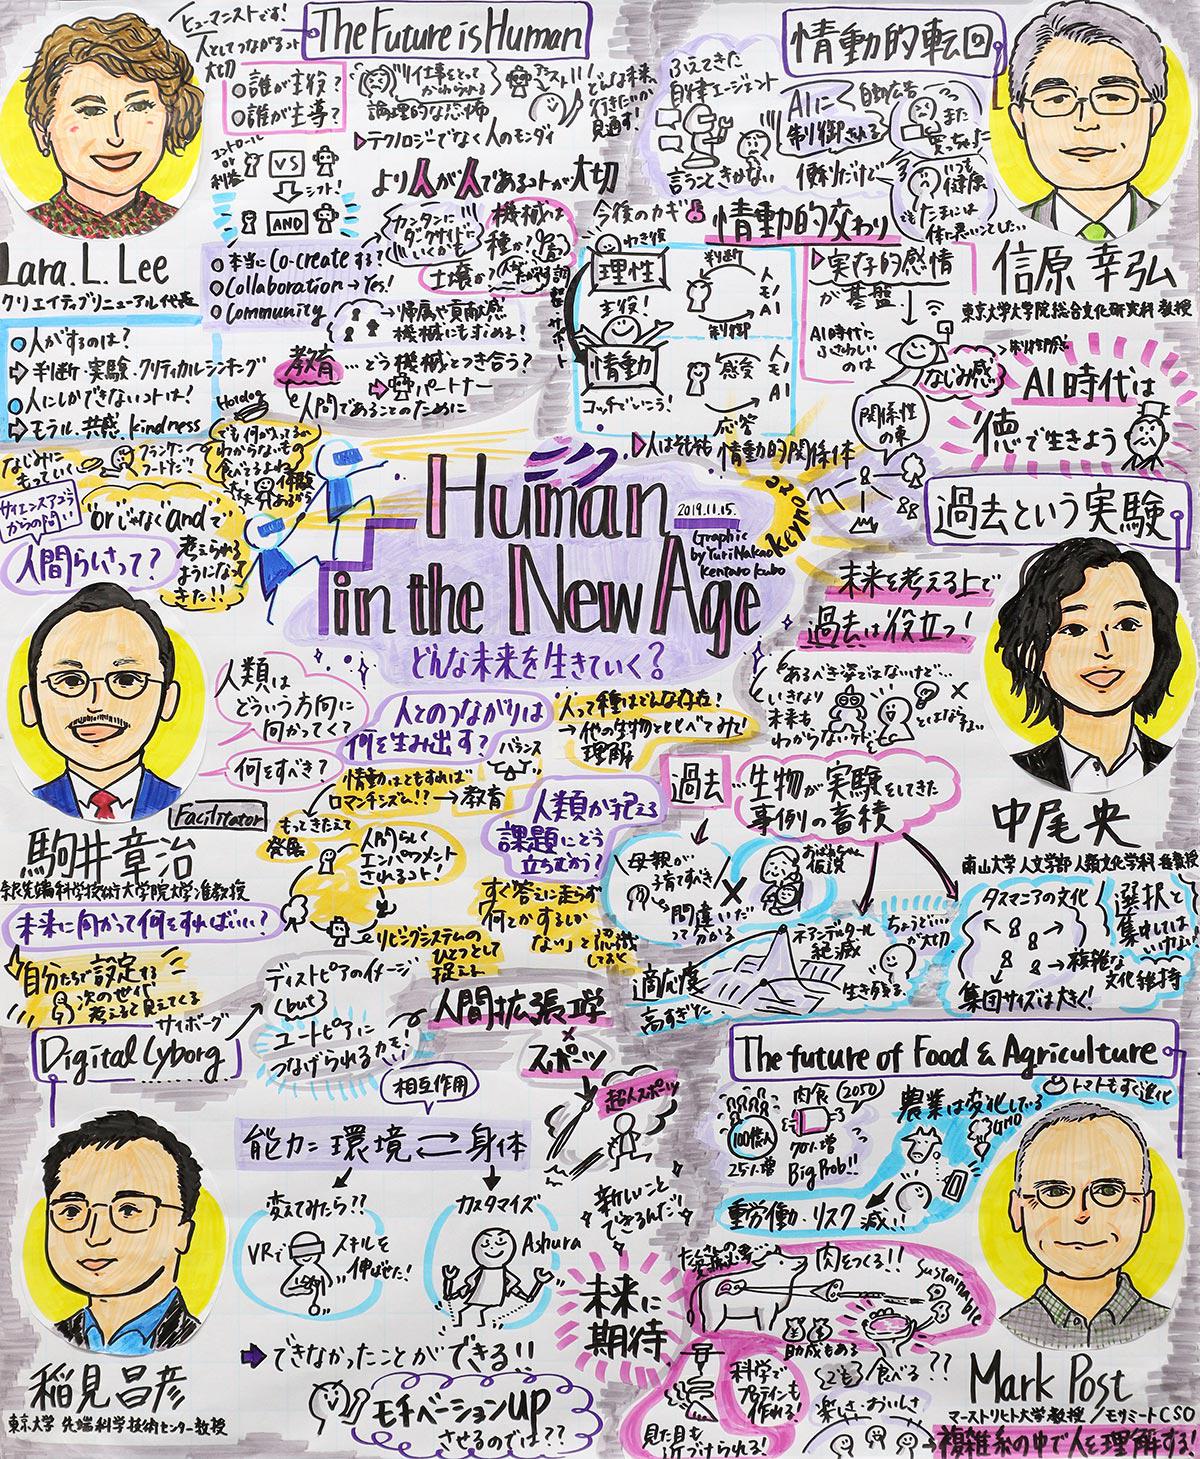 ヒューマニストです!
人としてつながるコト
大切
The Future is Human
○誰が主役?
○誰が主導?
コントロール
or
利益
VS
シフト!
AND
仕事をとって
かわられる
論理的な恐怖
▷テクノロジーでなく人のモンダイ
どんな未来、
行きたいか
見通す!
より人が人であるコトが大切
Lara. L. Lee
クリエイティブリニューアル代表
○本当にCo-createする?
○Collaboration→Yes!
○Community
カンタンに
ダークサイドに
いくかも
機械は
種か?
土壌か?
帰属や貢献感
機械にもすすめる?
教育…どう機械とつき合う?
⇨パートナー
人間であることのために
○人がするのは?
⇨判断・実験・クリティカルシンキング
○人にしかできないコトは!
⇨モラル、共感、kindness
Hotdog
なじみに
もっていく
フランケン
フードだ!
でも何が入ってるか
わからないもの
食べてるよね
体験
あるから
サイエンスアゴラ
からの問い
人間らしさって?
"or"じゃなく"and"で
考えられる
ようになって
きた!!
情動的転回
ふえてきた
自律エージェント
言うこときかない
AIに
制御される
自動広告
また
買っちゃった
便利だけど
いつも
健康
でもたまには
体に悪いことしたい…
今後のカギ
情動的交わり
わき役
理性
主役!
情動
コッチでいこう!
判断
制御
人
モノ
AI
感受
応答
人
モノ
AI
▷実存的感情
が基盤
AI時代に
ふさわしい
のは
なじみ感
関係性
の束
▷人はそもそも情動的関係体
信原 幸弘
東京大学大学院総合文化研究科 教授
AI時代は
徳で生きよう
Human
in the New Age
2019.11.15.
Graphic
by Yuri Nakao
Kentaro Kubo
keynote
どんな未来を生きていく?
過去という実験
未来を考える上で
過去は役立つ!
あるべき姿ではないけど…
いきなり
未来も
わからないケド
とはならない
過去…生物が実験をしてきた
事例の蓄積
母親が
子育てすべき
おばあちゃん
仮説
間違いだ
って分かる
ネアンデルタール
絶滅
適応度
高すぎた
ちょうどいいが
大切
生き残る
タスマニアの文化
→複雑な
文化維持
集団サイズは大きく!
選択と
集中しては
いけない!
中尾 央
南山大学 人文学部 人類文化学科 准教授
人類は
どういう方向に
向かってく?
何をすべき?
人とのつながりは
何を生み出す?
バランス
情動はともすれば
ロマンチシズム!?→教育
人って種はどんな存在!
→他の生物とくらべてみて
理解
人類が抱える
課題にどう
立ちむかう?
もってきたえて
発展
人間らしく
エンパワメント
されるコト!
すぐ答えに走らず
「何とかするしか
ない」と認識
しておく
リビングシステムの
ひとつとして
捉える
Facilitator
駒井章治
奈良先端科学技術大学院大学准教授
未来に向かって何をすればいい?
自分たちで設定する
次の世代
考えると見えてくる
サイボーグ
Digital Cyborg
ディストピアのイメージ
(but)
ユートピアに
つなげられるカモ!
人間拡張工学
×
スポーツ
超人スポーツ
相互作用
能力=環境⇄身体
変えてみたら??
VRで
スキルを
伸ばせた!
カスタマイズ
Ashura
新しいこと
できるんだ!
➡できなかったことができる!!
モチベーションUP
させるのでは??
未来に
期待
稲見昌彦
東京大学 先端科学技術センター教授
The future of Food & Agriculture
肉食
(2050)
100億人
25%増
70%増
Big Prob!!
農業は変化している
トマトもすぐ進化
GMO
重労働・リスク減!!
肉をつくる!!
Sustainable
助成もある
科学で
プロテインも
作れる!
見た目も
近づけられる!
食べる??
楽しさ・おいしさ
Mark Post
マーストリヒト大学教授/モサミートCSO
→複雑系の中で人を理解する!